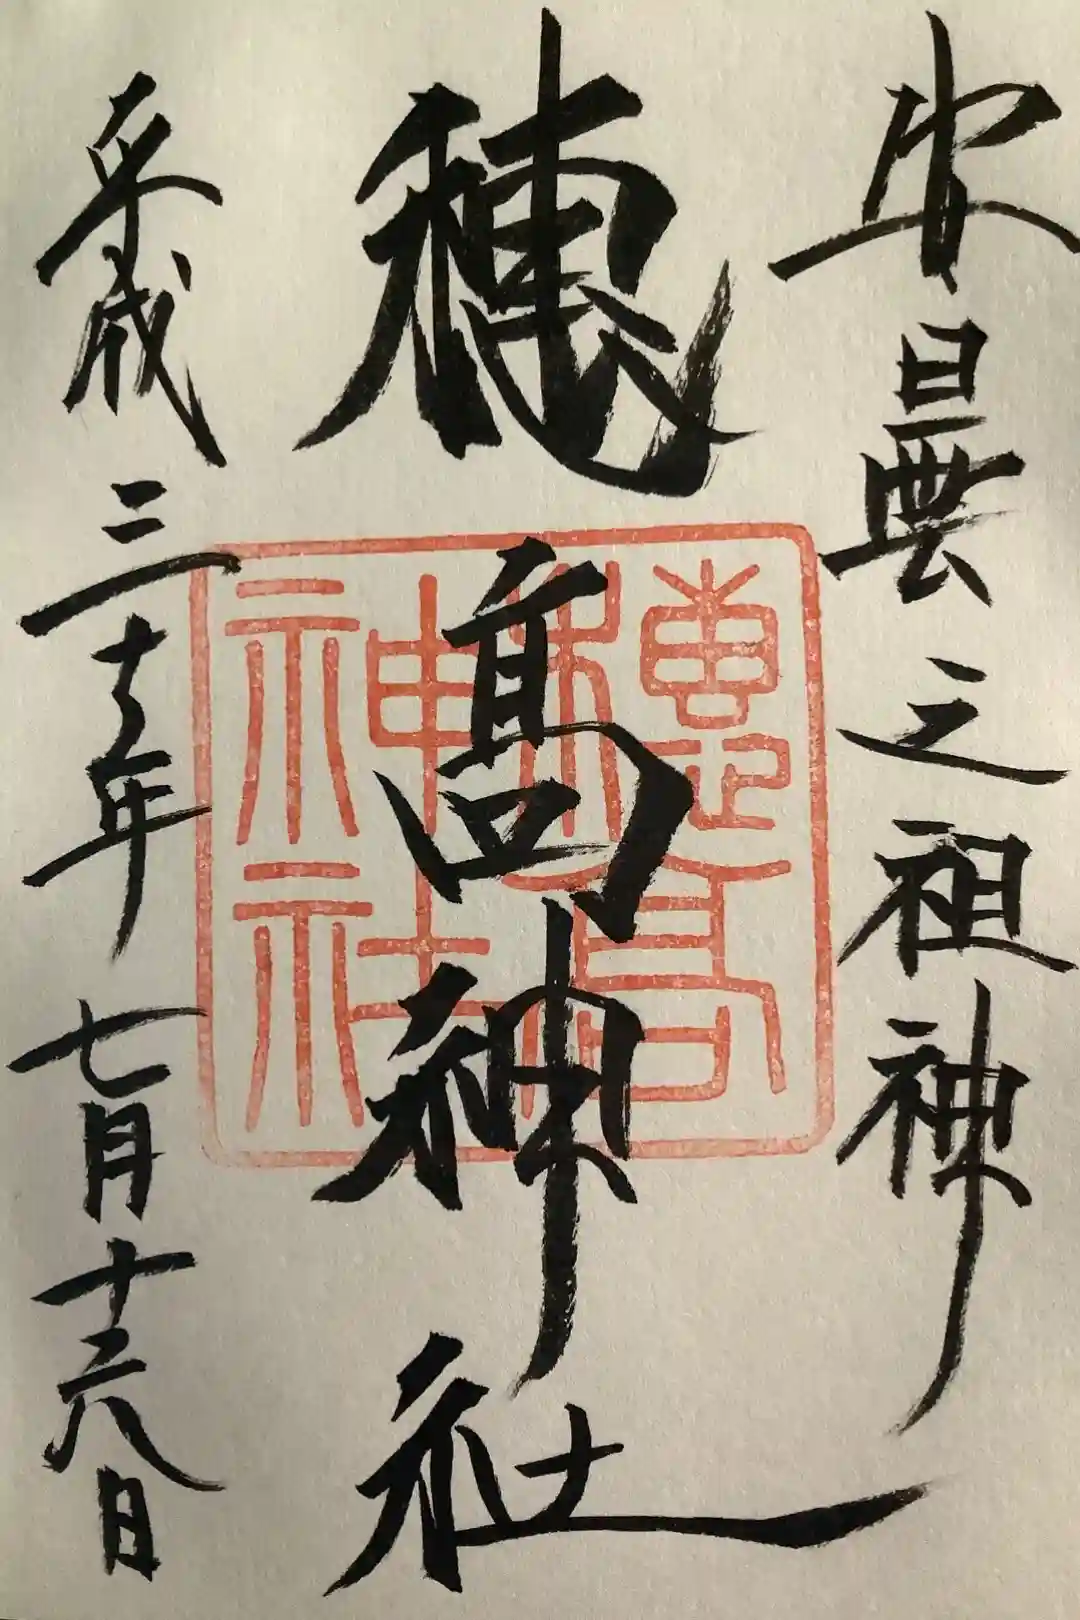 安曇之祖神
穂髙神社
平成三十年 七月十六日
穗高
神社